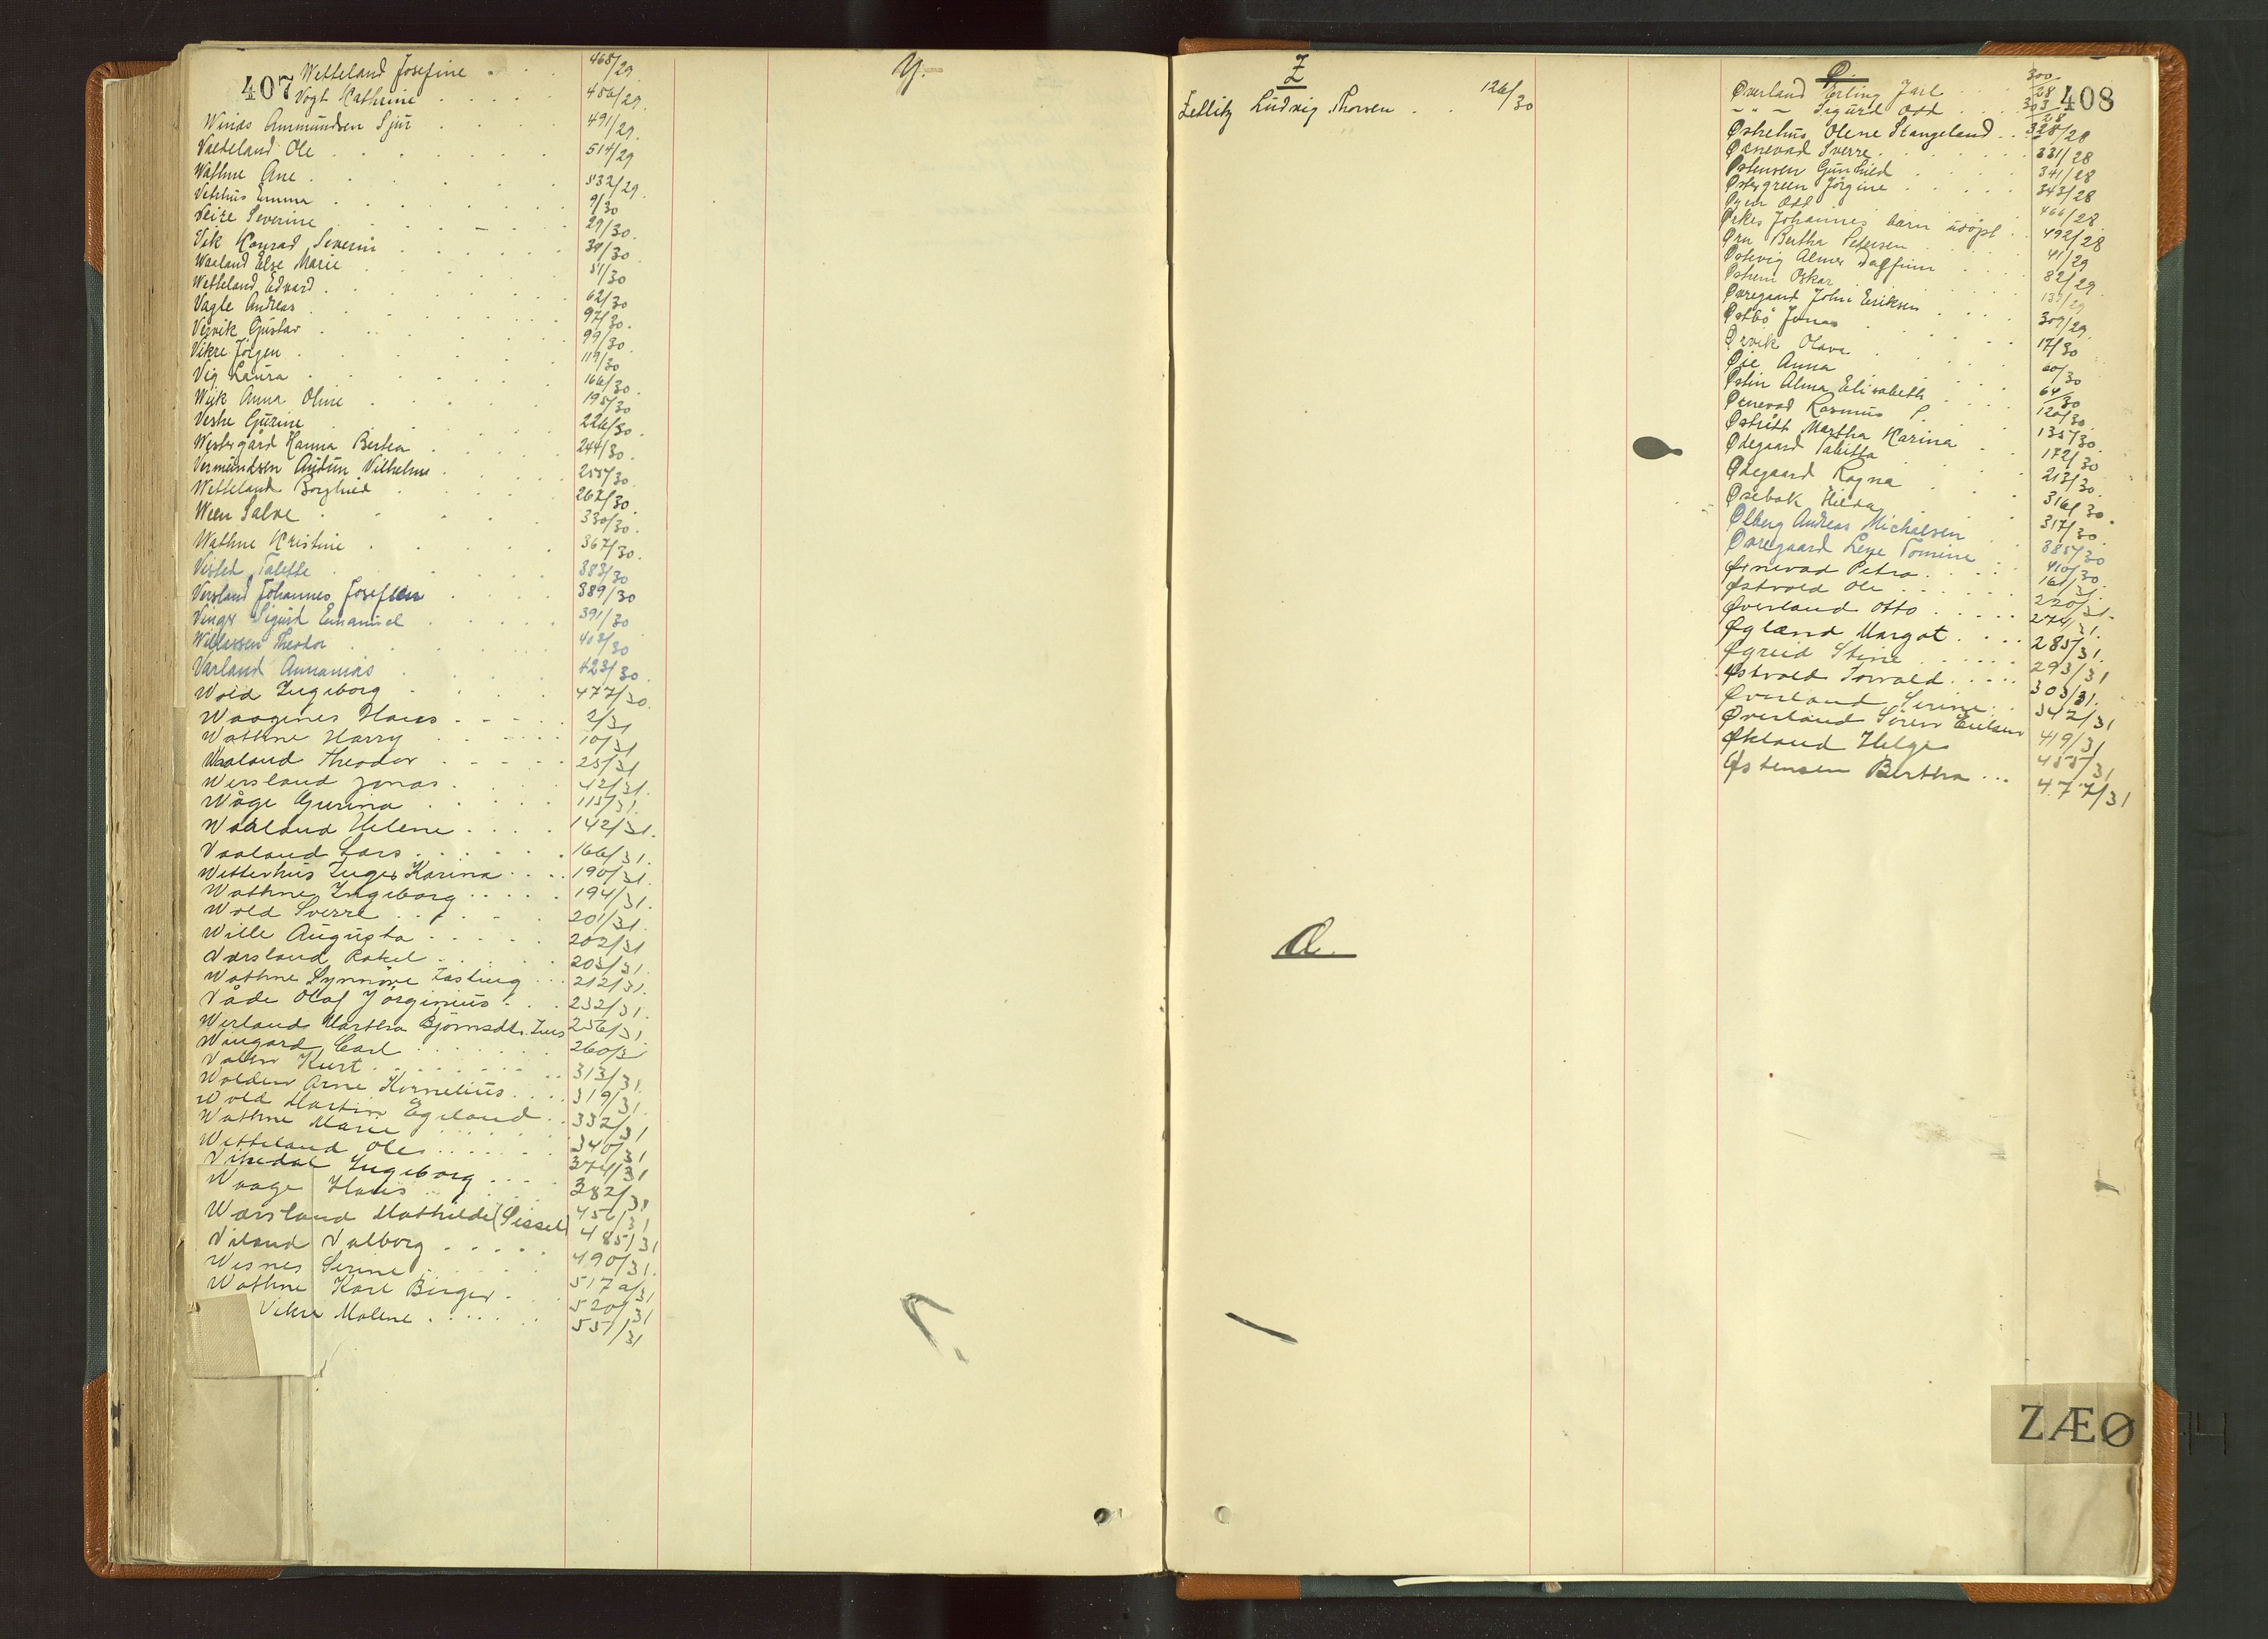 407
Wetteland Josefine 468/29
Vogt Kathrine 486/29.
Winds Ammundsen Sjur 491/29.
Vaedeland Ole 514/29
Wathne Ane 532/29.
Vethus Emma 9/30
Veire Severine 29/30.
Vik Konrad Severin 39/30
Waaland Else Marie 51/30
Wetteland Edvard 62/30
Vagle Andreas 97/30.
Vervik Gustav 99/30
Vikre Jörgen 119/30
Vig Laura 166/30.
Wiik Anna Oline 195/30
Veshe Gurine 226/30.
Westergård Hanna Bertea 244/30.
Vermundsen Audun Vilhelm 255/30.
Wetteland Borghild 262/30.
Ween Salve 330/30.
Wathne Kristine 367/30.
Visted Talette 383/30
Versland Johannes Josefsen 389/30
Vinge Sigurd Emanuel 391/30
Willassen Theodor 403/30
Varland Annanias 423/30.
Wold Ingeborg 477/30.
Waagenes Hans 2/31
Wathne Harry 10/31
Waaland Theodor 25/31
Wersland Jonas 42/31.
Wåge Gurina 115/31.
Waaland Helene 142/31.
Vaaland Lars 166/31.
Wetterhus Inger Karina 190/31.
Wathne Ingeborg 194/31.
Wold Sverre 201/31.
Wille Augusta 202/31
Versland Rakel 203/31.
Wathne Synnöve Tasting 212/31.
Våde Olaf Jörginius 232/31.
Werland Martha Björnsdtr. 256/31.
Wingard Carl 260/31
Valen Kurt 313/31.
Walden Arne Kornelius 319/31.
Wold Martin Egeland 332/31
Wathne Marie 340/31
Wetteland Ole 374/31
Vikedal Ingeborg 382/31
Waage Hans 456/31
Wærsland Mathilde (Sissel) 485/31
Viland Valborg 490/31.
Wesnes Serine 517a/31
Wathne Karl Birger 520/31
Vikre Malene 551/31
Y.
Z
Zetlitz Ludvig Thorsen 126/30
Æ.
Ø.
408
Øverland Erling Jarl 300/28
- " - Sigurd Odd 303/28
Øskehus Olene Stangeland 328/28
Øznevad Sverre 331/28
Østensen Gunhild 341/28
Østergreen Jörgine 343/28
Øyen Odd 466/28.
Ørkes Johannes barn adopt 492/28
Ørn Bertha Petersen 41/29
Østevig Almer Dagfinn 82/29.
Øshem Oskar 139/29
Øvregaard John Eriksen 309/29.
Østbö Jonas 17/30
Ørvik Olava 60/30
Øie Anna 64/30
Østin Alma Elisabeth 120/30.
Øznevad Rasmus P. 135/30.
Østrått Martha Karina 172/30
Ødegaard Tabitha 213/30.
Ødegaard Ragna 316/30.
Øsebak Hilda 317/30.
Ølberg Andreas Michalsen 385/30
Øvregaard Lene Tomine 410/30.
Øznevad Petra 161/31.
Østvold Ole 220/31.
Øverland Otto 274/31.
Øglænd Margot 285/31.
Øgreid Stine 293/31
Østvold Torvald 303/31.
Øverland Serine 342/31
Øverland Sören Eielsen 419/31
Økland Helge 455/31
Østensen Bertha 477/31
ZÆØ